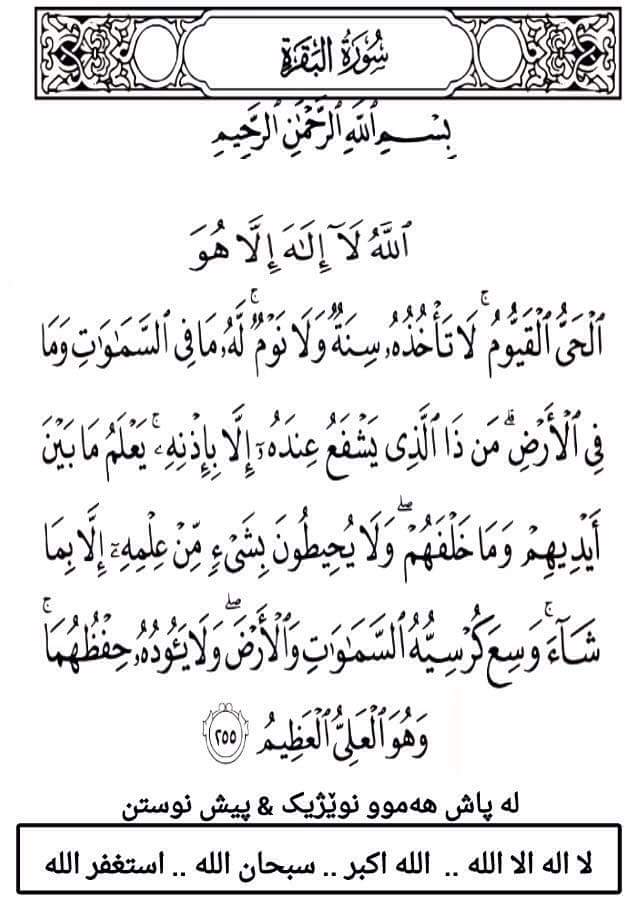 سُورَةُ البَقَرَةِ
بِسْمِ ٱللَّهِ ٱلرَّحْمَٰنِ ٱلرَّحِيمِ
ٱللَّهُ لَآ إِلَٰهَ إِلَّا هُوَ
ٱلْحَىُّ ٱلْقَيُّومُ ۚ لَا تَأْخُذُهُۥ سِنَةٌ وَلَا نَوْمٌ ۚ لَّهُۥ مَا فِى ٱلسَّمَٰوَٰتِ وَمَا
فِى ٱلْأَرْضِ ۗ مَن ذَا ٱلَّذِى يَشْفَعُ عِندَهُۥٓ إِلَّا بِإِذْنِهِۦ ۚ يَعْلَمُ مَا بَيْنَ
أَيْدِيهِمْ وَمَا خَلْفَهُمْ ۖ وَلَا يُحِيطُونَ بِشَىْءٍ مِّنْ عِلْمِهِۦٓ إِلَّا بِمَا
شَآءَ ۚ وَسِعَ كُرْسِيُّهُ ٱلسَّمَٰوَٰتِ وَٱلْأَرْضَ ۖ وَلَا يَـُٔودُهُۥ حِفْظُهُمَا ۚ
وَهُوَ ٱلْعَلِىُّ ٱلْعَظِيمُ ٢٥٥
لە پاش هەموو نوێژیک & پیش نوستن
لا اله الا الله .. الله اکبر .. سبحان الله .. استغفر الله